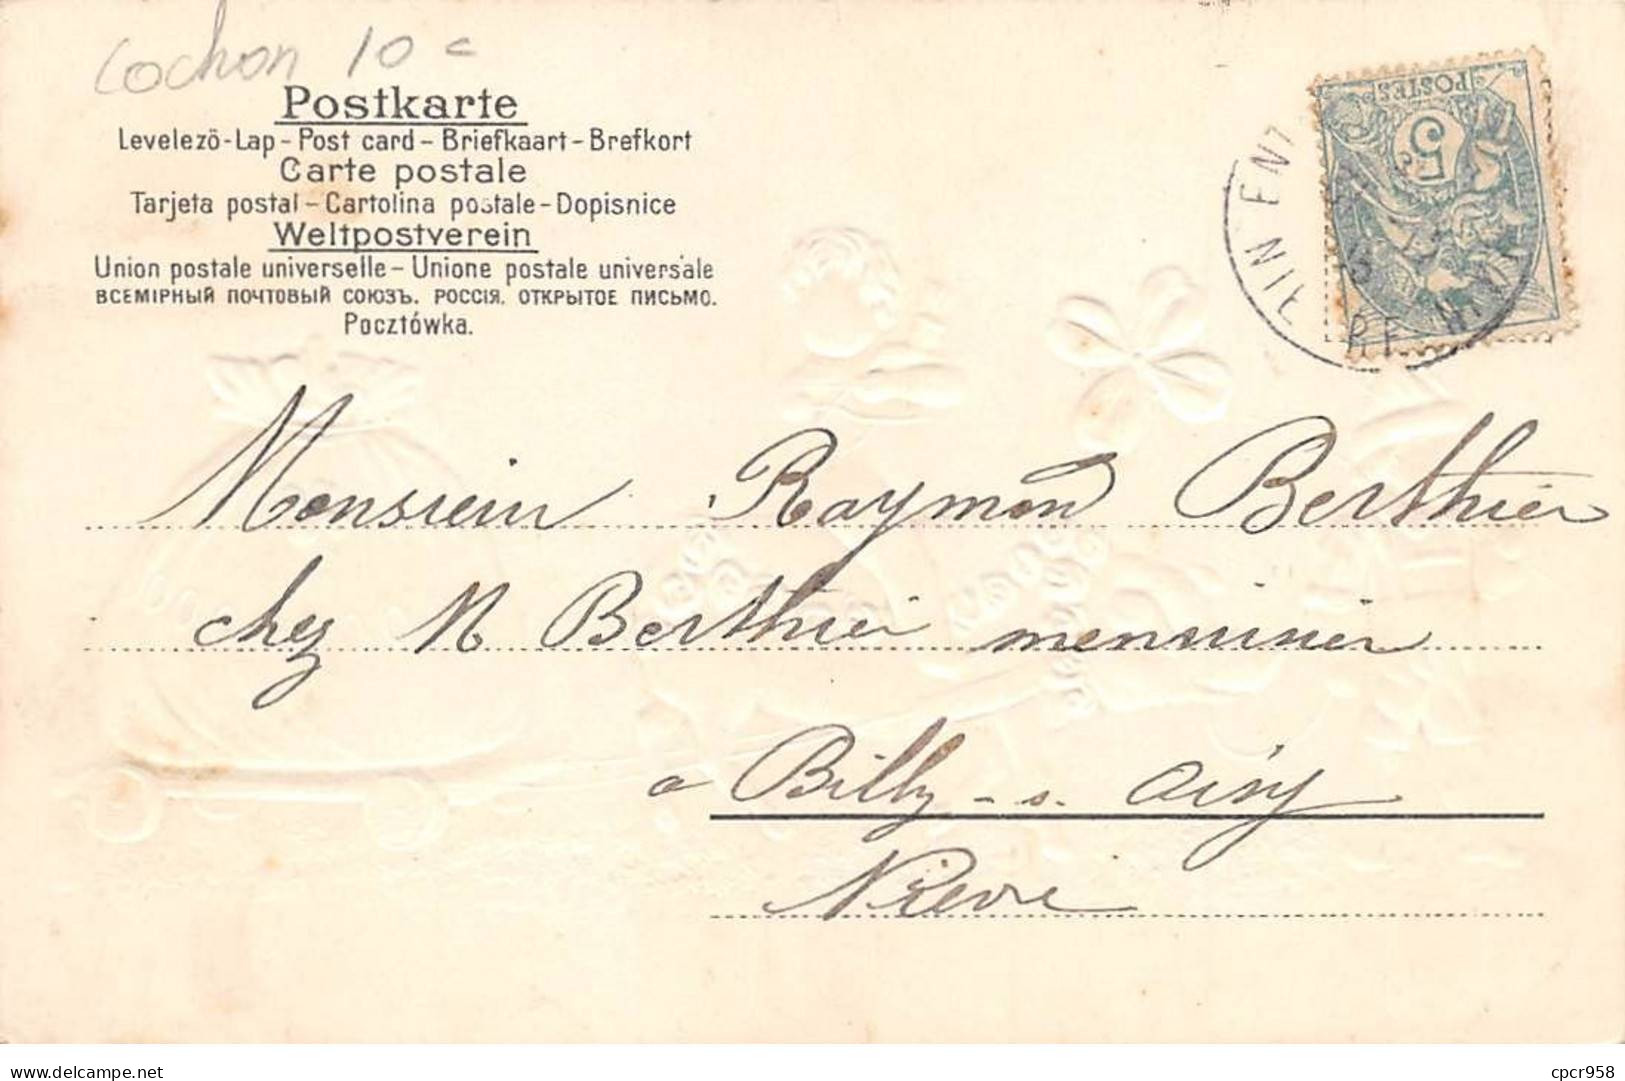 Cochon 10 c
Postkarte
Levelező-Lap - Post card - Briefkaart - Brefkort
Carte postale
Tarjeta postal - Cartolina postale - Dopisnice
Weltpostverein
Union postale universelle - Unione postale universale
ВСЕМІРНЫЙ ПОЧТОВЫЙ СОЮЗЪ. РОССІЯ. ОТКРЫТОЕ ПИСЬМО.
Pocztówka.
POSTES
5c
Monsieur Raymond Berthier
chez M Berthier menuisier
a Billy - s. Oisy
Nièvre
delcampe.net
cpcr958